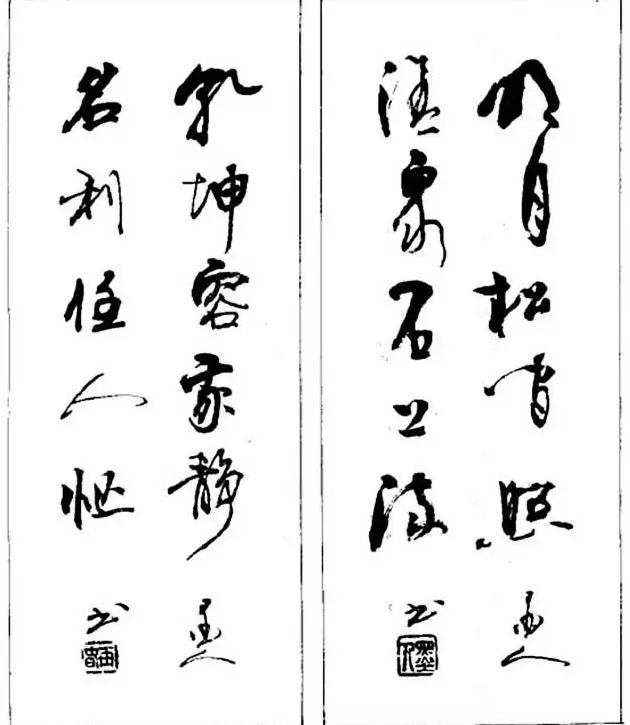 明月松间照 人
清泉石上流 书
乾坤容我静 人
名利任人忙 书